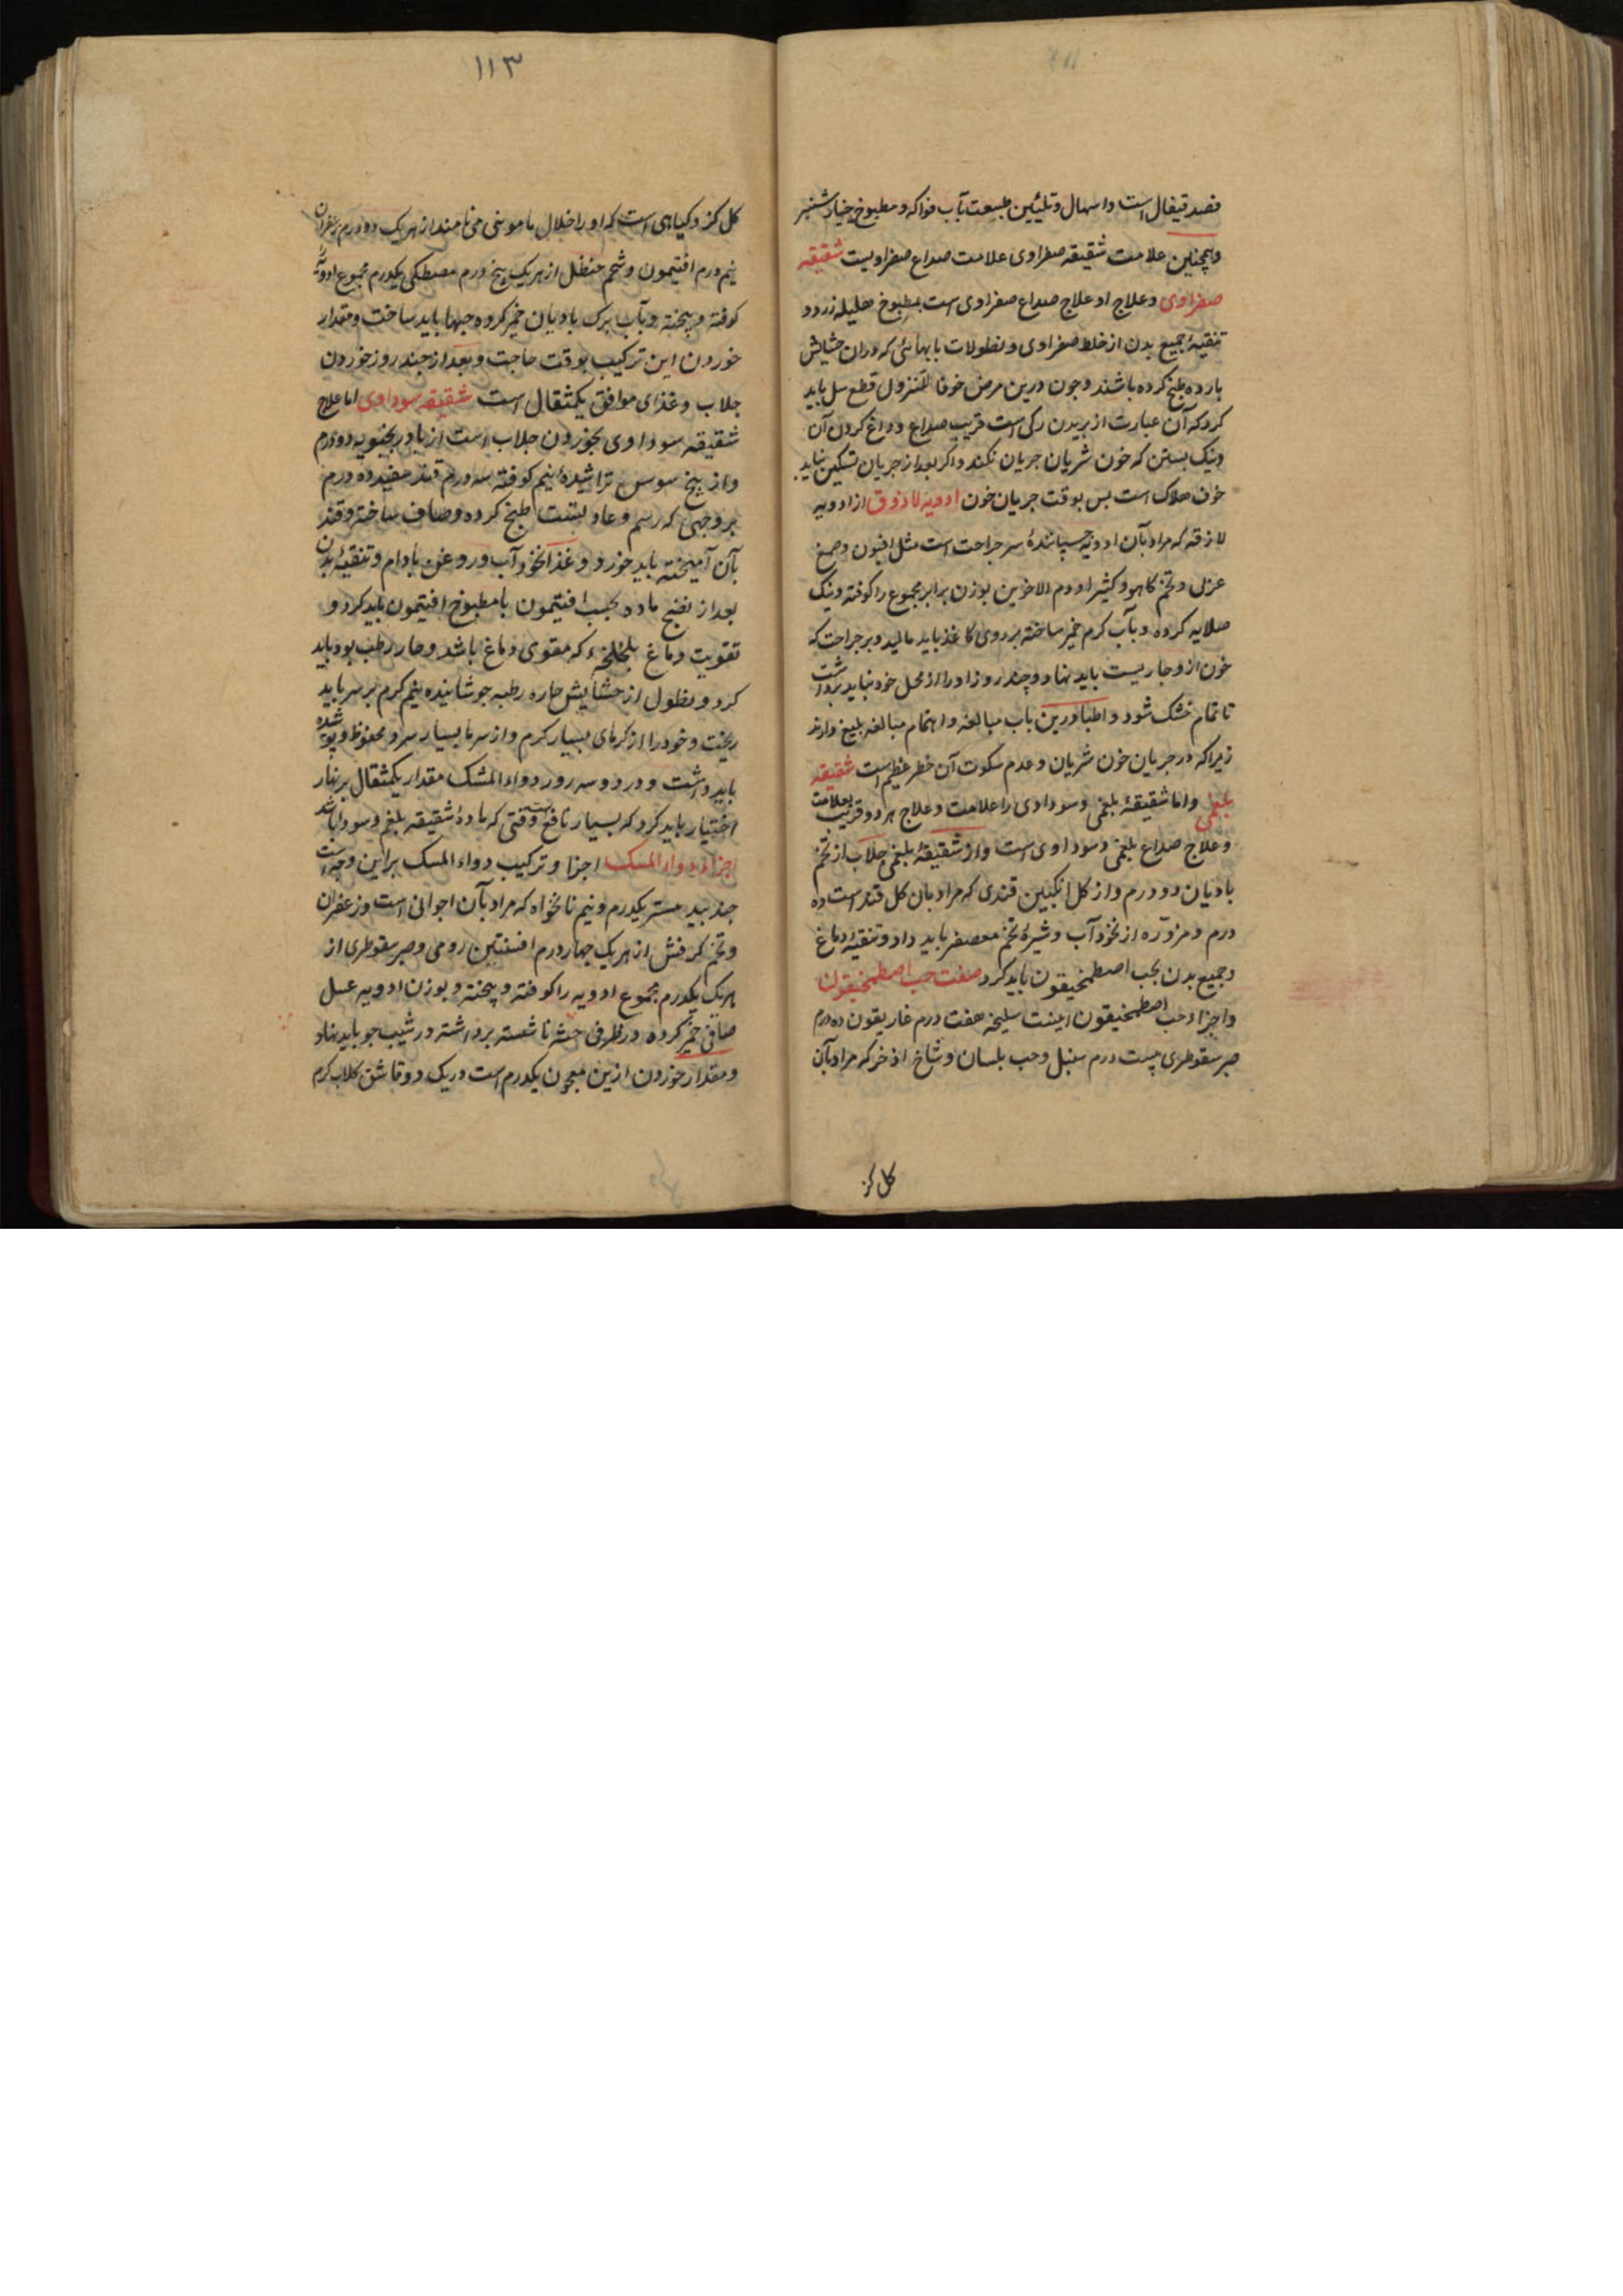 فصد قیفال است و اسهال و تلیین طبیعت بآب فواکه و مطبوخ خیارشنبر
وهمچنین علامت شقیقه صفراوی علامت صداع صفراویست شقیقه
صفراوی وعلاج او علاج صداع صفراوی است بمطبوخ هلیله زرد و
تنقیهٔ جمیع بدن از خلط صفراوی و نطولات بابهائی که دران حشایش
بارده طبخ کرده باشند وجون درین مرض خوفا للنزول قطع سل باید
کرد که آن عبارت از بریدن رکی است قریب صداع و داغ کردن آن
ونیک بستن که خون شریان جریان نکند واکر بعد از جریان تسکین نیابد
خوف هلاک است بس بوقت جریان خون ادویه لازوق از ادویه
لازقه که مراد بآن ادویه جسپانندهٔ سر جراحت است مثل افیون وصمغ
عربی وتخم کاهو وکثیرا ودم الاخوین بوزن برابر مجموع را کوفته ونیک
صلایه کرده وبآب کرم خمیر ساخته بر روی کاغذ باید مالید وبر جراحت که
خون ازو جاریست باید نهاد وچند روز او را از محل خود نباید برداشت
تا تمام خشک شود واطبا درین باب مبالغه واهتمام مبالغه بلیغ دارند
زیرا که در جریان خون شریان وعدم سکوت آن خطر عظیم است شقیقه
بلغمی واما شقیقهٔ بلغمی وسوداوی را علامت وعلاج هر دو قریب بعلامت
وعلاج صداع بلغمی وسوداوی است واز شقیقهٔ بلغمی جلاب از تخم
بادیان دو درم واز کل انکبین قندی که مراد بان کل قند است ده
درم ومزوّره از نخود آب وشیرهٔ تخم معصفر باید داد وتنقیهٔ دماغ
وجمیع بدن بحب اصطمخیقون باید کرد صفت حب اصطمخیقون
واجزاء حب اصطمخیقون اینست سلیخه هفت درم غاریقون ده درم
صبر سقوطری بیست درم سنبل وحب بلسان وشاخ اذخر که مراد بآن
کل کز
١١٣
کل کز وکیاهی است که او را خلال مامونی می نامند از هریک دو درم زعفران
نیم درم افتیمون وشحم حنظل از هریک پنج درم مصطکی یکدرم مجموع ادویه
کوفته وبیخته وبآب برک بادیان خمیر کرده حبها باید ساخت ومقدار
خوردن این ترکیب بوقت حاجت وبعد از چند روز خوردن
جلاب وغذای موافق یکمثقال است شقیقه سوداوی اما علاج
شقیقه سوداوی بخوردن جلاب است از بادرنجنوبه دو درم
واز بیخ سوس تراشیدهٔ نیم کوفته سه درم قند سفید ده درم
بر وجهی که رسم وعادتست طبخ کرده وصاف ساخته وقند
بآن آمیخته باید خورد وغذا نخود آب وروغن بادام وتنقیهٔ بدن
بعد از نضج ماده بحب افتیمون یا مطبوخ افتیمون باید کرد و
تقویت دماغ بلخلخهٔ که مقوی دماغ باشد وحار رطب بود باید
کرد ونطول از حشایش حاره رطبه جوشانیده نیم کرم بر سر باید
ریخت وخود را از کرمای بسیار کرم واز سرما بسیار سرد محفوظ وپوشیده
باید داشت ودر دو سه روز دواء المشک مقدار یکمثقال بر نهار
اختیار باید کرد که بسیار نافع است وقتی که مادهٔ شقیقه بلغم وسودا باشد
اجزاء دواء المسک اجزا وترکیب دواء المسک براین وجه است
جند بیدستر یکدرم ونیم نانخواه که مراد بآن اجوانی است وزعفران
وتخم کرفس از هریک چهار درم افسنتین رومی وصبر سقوطری از
هریک یکدرم مجموع ادویه را کوفته وبیخته وبوزن ادویه عسل
صافی خمیر کرده در ظرفی ناشسته برداشته در شیب جو باید نهاد
ومقدار خوردن ازین معجون یکدرم است در یک دو قاشق کلاب کرم